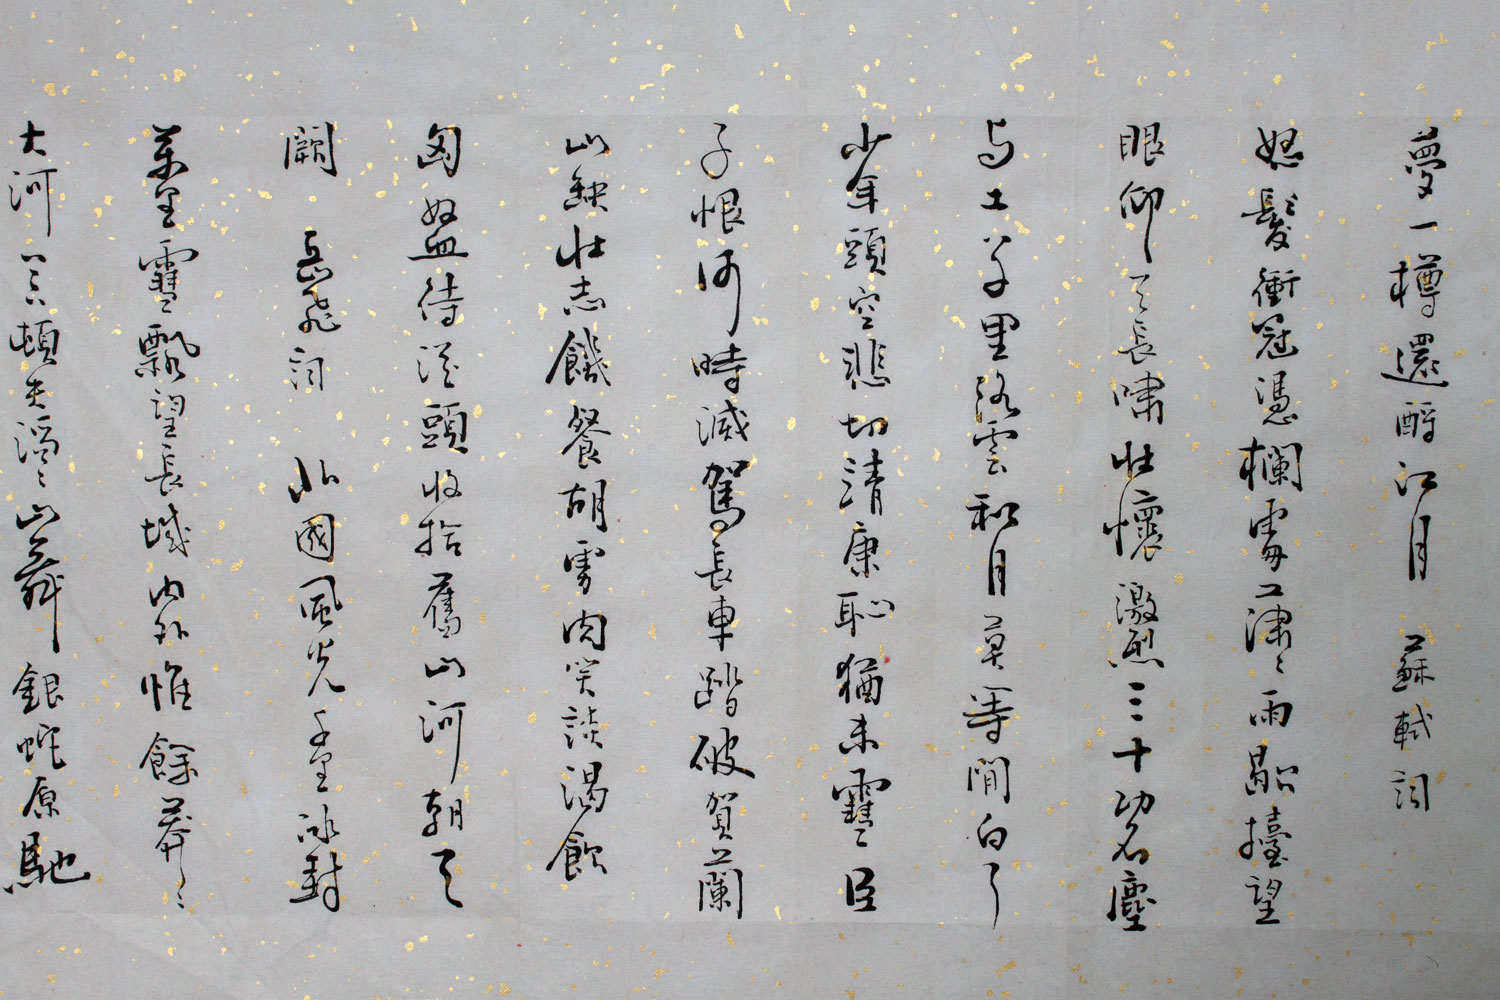 夢一樽還酹江月 蘇軾詞
怒髮衝冠憑欄處瀟〻雨歇擡望
眼仰天長嘯壯懷激烈三十功名塵
与土八千里路雲和月莫等閒白了
少年頭空悲切清康恥猶未雪臣
子恨何時滅駕長車踏破賀蘭
山缺壯志饑餐胡虜肉笑談渴飲
匈奴血待從頭收拾舊山河朝天
闕 岳飛詞 北國風光千里冰封
萬里雪飄望長城內外惟餘莽〻
大河上下頓失滔〻山舞銀蛇原馳